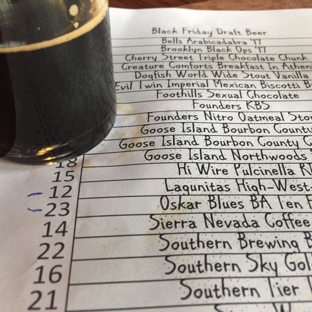 Black Friday Draft Beer
Bells Arabicadabra '17
Brooklyn Black Ops '17
Cherry Street Triple Chocolate Chunk
Creature Comforts Breakfast In Athen
Dogfish World Wide Stout Vanilla
Evil Twin Imperial Mexican Biscotti B
Foothills Sexual Chocolate
Founders KBS
Founders Nitro Oatmeal Stou
Goose Island Bourbon County
Goose Island Bourbon County C
Goose Island Northwoods
18 Hi Wire Pulcinella
15 Lagunitas High-West-
12 Oskar Blues BA Ten F
23 Sierra Nevada Coffee
14 Southern Brewing B
22 Southern Sky Gol
16 Southern Tier
21